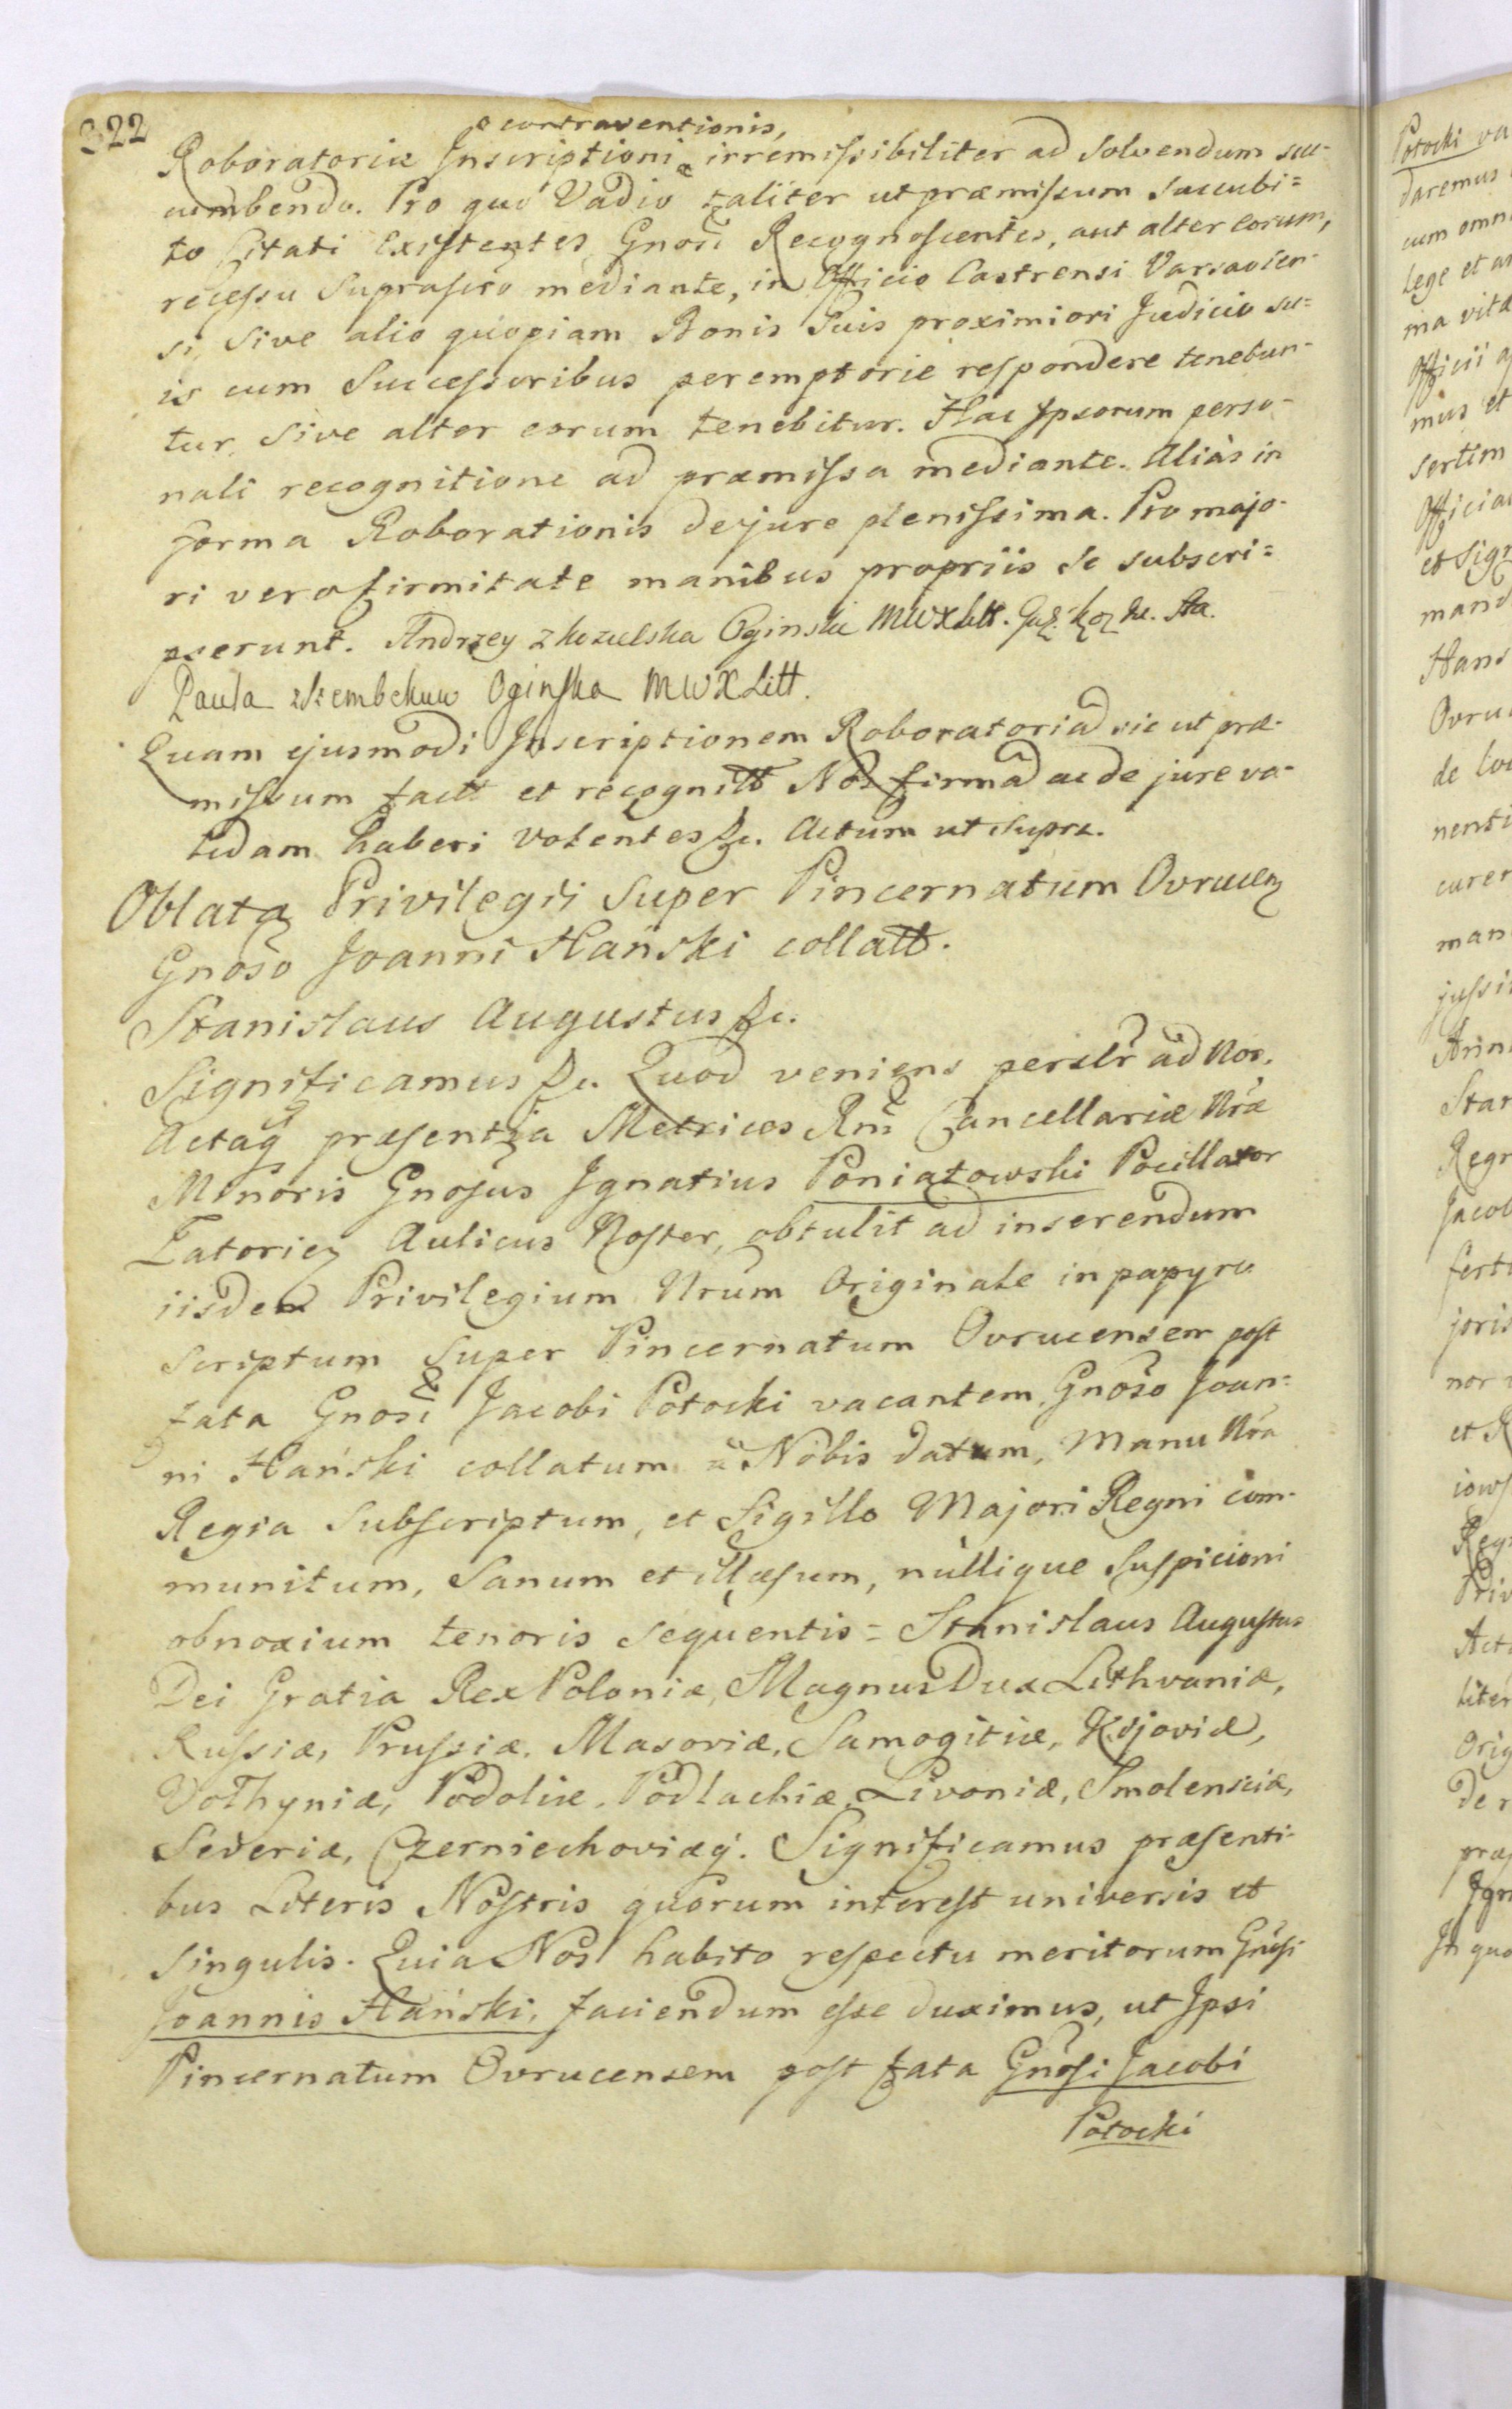 322
contraventionis,
Roboratoriæ Inscriptioni irremissibiliter ad solvendum suc-
cumbendo. Pro quo Vadio taliter ut præmissum succubi=
to Citati Existentes Gnosi Recognoscentes, aut alter eorum,
recessu Suprascto mediante, in Officio Castrensi Varsavien-
si, sive alio quopiam Bonis Suis proximiori Judicio su=
is cum Successoribus peremptorie respondere tenebun-
tur, Sive alter eorum tenebitur. Hac Ipsorum perso-
nali recognitione ad præmissa mediante. Aliàs in
forma Roborationis de jure plenissima. Pro majo-
ri vero firmitate manibus propriis se subscri=
pserunt. Andrzey z Kozielska Oginski MWXLitt.
Paula z Szembekuw Oginska MWXLitt.
Quam ejusmodi Inscriptionem Roboratoriã sic ut præ-
missum factt et recognitt Nos firmã ac de jure va-
lidam haberi volentes &c. Actum ut supra.
Oblata Privilegii Super Pincernatum Ovrucen
Gnoso Joanni Hański collatt.
Stanislaus Augustus &c.
Significamus &c. Quod veniens perslr ad Nos.
Actaq præsentia Metrices Rni Cancellariæ Nræ
Minoris Gnosus Ignatius Poniatowski Pocillator
Zatorien Aulicus Noster, obtulit ad inserendum
iisdem Privilegium Nrum Originale in papyro
scriptum super Pincernatum Ovrucensem post
fata Gnosi Jacobi Potocki vacantem, Gnoso Joan=
ni Hański collatum à Nobis datum, Manu Nra
Regia Subscriptum, et Sigillo Majori Regni com-
munitum, Sanum et illæsum, nullique Suspicioni
obnoxium tenoris sequentis = Stanislaus Augustus
Dei Gratia Rex Poloniæ, Magnus Dux Lithvaniæ,
Russiæ, Prussiæ, Masoviæ, Samogitiæ, Kijoviæ,
Volhyniæ, Podoliæ, Podlachiæ, Livoniæ, Smolensciæ,
Severiæ, Czerniechoviæq. Significamus præsenti-
bus Literis Nostris quorum interest universis et
singulis. Quia Nos habito respectu meritorum Gnosi
Joannis Hański, faciendum esse duximus, ut Ipsi
Pincernatum Ovrucensem post fata Gnosi Jacobi
Potocki
Potocki va
daremus
cum omn
lege et a
ma vitæ
Officii a
mus et
sertim
Officia
et Sig
mand
Hans
Ovru
de lo
nenti
curer
man
jussi
Ann
Star
Regn
Jacob
fert
joris
nor
et R
iows
Regn
Priv
Act
liter
Orig
De
præs
Ign
In quo